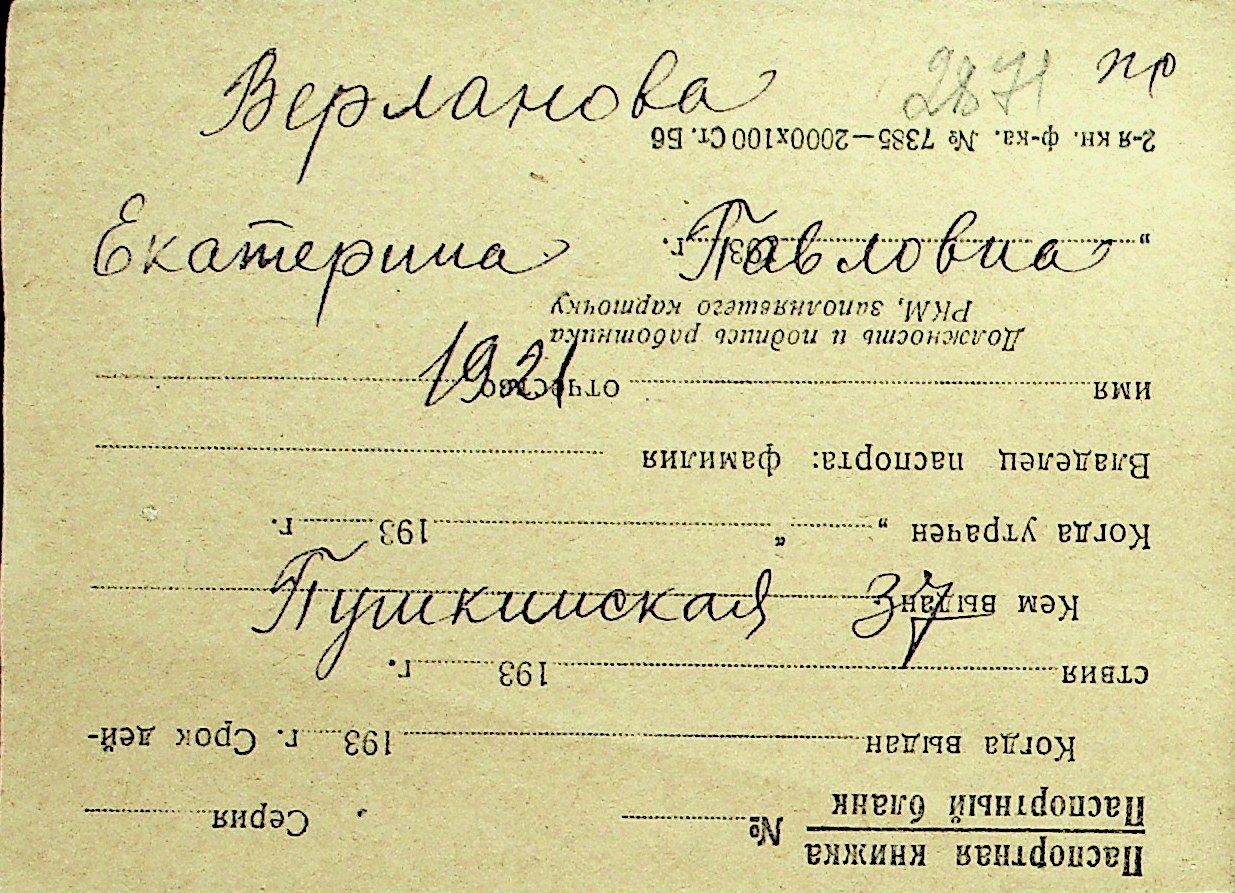 Верланова 2871 пр
Екатерина Павловна
1921
Пушкинская 37
Паспортная книжка
Паспортный бланк
№ Серия
Когда выдан 193 г. Срок дей-
ствия 193 г.
Кем выдан
Когда утрачен „ “ 193 г.
Владелец паспорта: фамилия
имя отчество
Должность и подпись работника
РКМ, заполнявшего карточку
„ 193 г.
2-я кн. ф-ка. № 7385—2000х100 Ст. Б6